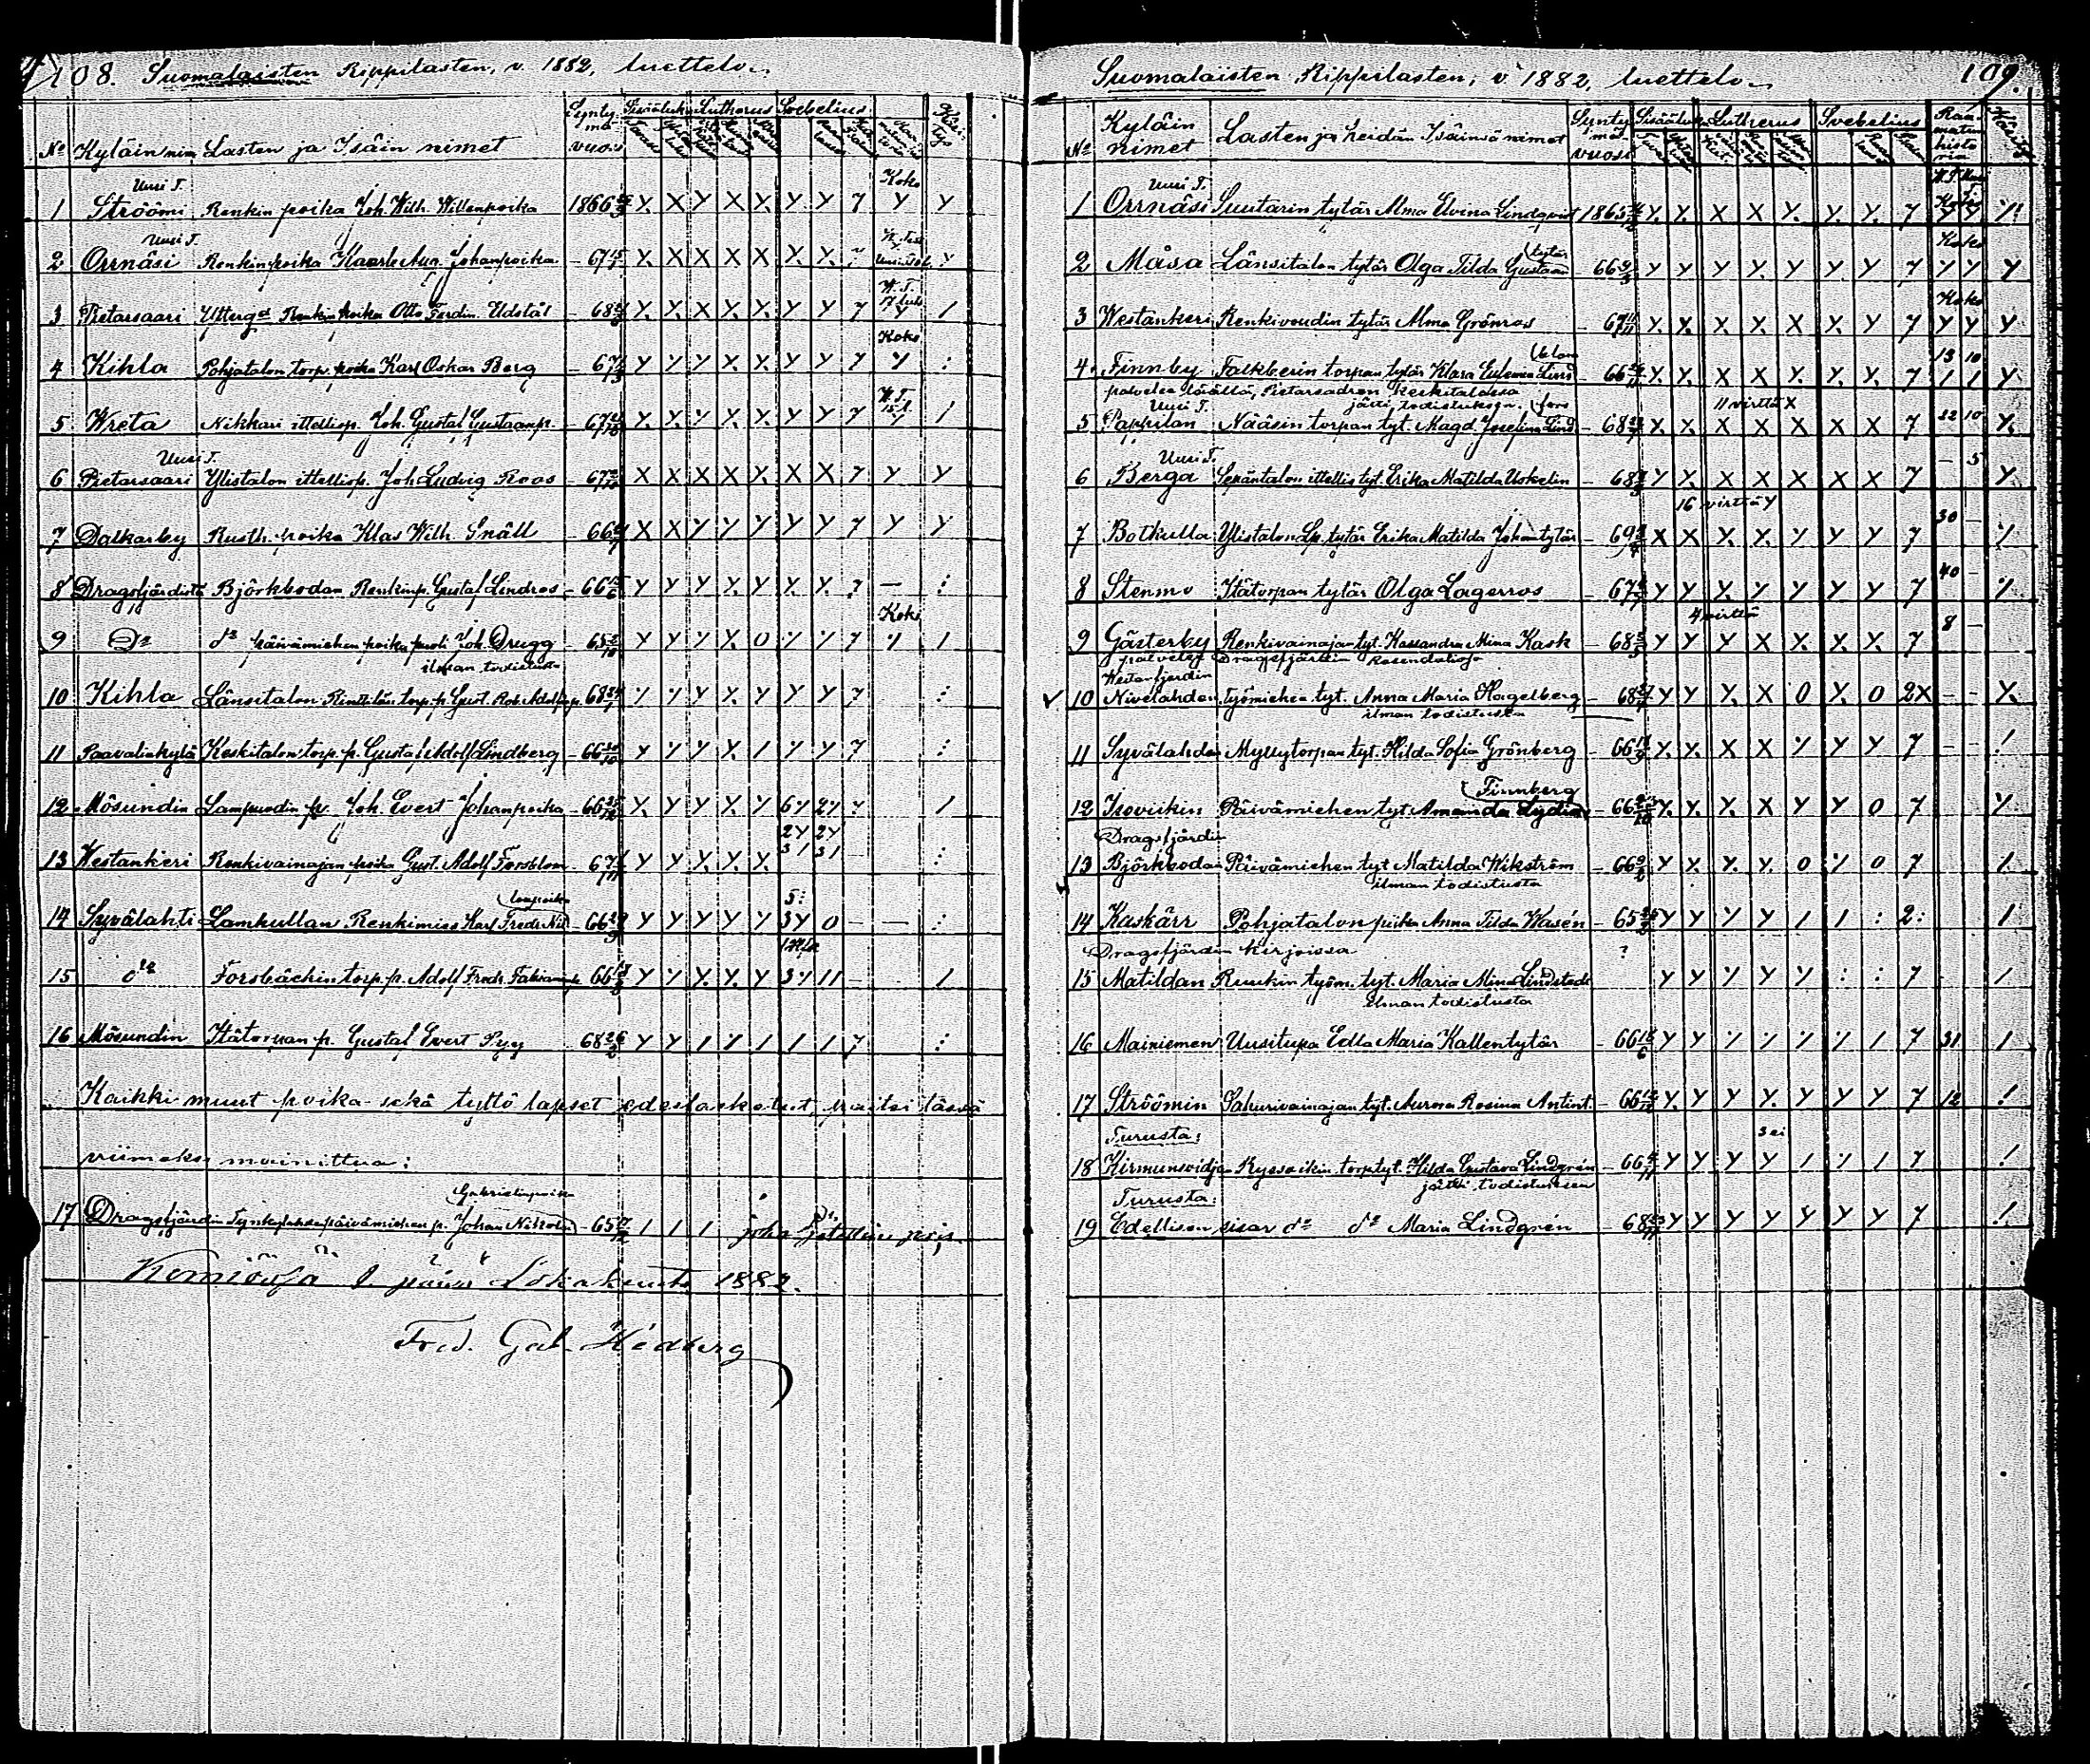 108. Suomalaisten Rippilasten, v. 1882, luettelo.
No Kyläin nim Lasten ja Isäin nimet Syntymä vuosi Sisäluku Lutherus Svebelius Käsitys
Uusi T. Koko
1 Ströömi Renkin poika Joh. Wilh. Willenpoika 1866 Y. X Y X Y. Y Y 7 Y Y
Uusi T.
2 Orrnäsi Renkinpoika Kaarle Aug. Johanpoika - 67 Y. X X X X X. X. 7 Y
3 Pietarsaari Ytterg. Renkin poika Otto Ferdin. Eldstål 68 Y. X. X X X. Y Y 7 Y 1
Koko
4 Kihla Pohjatalon torp. poika Karl Oskar Berg - 67 Y Y Y X. X. Y Y 7 Y :
5 Wreta Nikkari ittellisp. Joh. Gustaf Gustaanp. - 67 Y. X. Y. X X. Y Y 7 1
Uusi T.
6 Pietarsaari Ylistalon ittellisp. Joh Ludvig Roos - 67 X X X X X. X X 7 Y Y
7 Dalkarby Rusth. poika Klas Wilh. Snäll - 66 X X Y Y Y Y Y 7 Y Y
8 Dragsfjärdistä Björkbodan Renkinp. Gustaf Lindros - 66 Y Y Y X Y X. X. 7 — :
Koko
9 Do do päivämiehen poika puoli Joh. Drugg - 65 Y Y Y X. 0 Y Y 7 Y 1
ilman todistusta
10 Kihla Länsitalon torp. p. Gust. Rob. Adolfinp. 68 Y Y Y X. X Y Y 7 :
11 Paavalinkylä Keskitalon torp. p. Gustaf Adolf Lindberg - 66 Y Y Y X. 1 Y Y 7 :
12 Mösundin Lampuodin p. Joh. Evert Johanpoika - 66 X. Y Y X. Y 6Y 2Y 7 1
2Y 2Y
13 Westankäri Renkivainajan poika Gust. Adolf Forsblom - 67 Y Y X. X. X. 31 31 :
5:
14 Syvälahti Lamkullan Renkimies Karl Fredr. Nil - 66 Y Y Y Y Y 3Y 0 — — :
15 do Forsbäckin torp. p. Adolf Fredr. - 66 Y Y Y. Y. Y 3Y 11 — 1
16 Mösundin Itätorpan p. Gustaf Evert Pyy 68 26/2 Y Y 1 Y 1 1 1 7 :
Kaikki muut poika- sekä tyttölapset edeslasketut, paitsi tässä
viimeksi mainittua:
Gabrielinpoika
17 Dragsfjärdin päivämiehen p. Johan Nikolai - 65 1 1 1
Kemiössä 1 päivä Lokakuuta 1882.
Fred. Gab. Hedberg
Suomalaisten Rippilasten, v 1882, luettelo. 109.
No Kyläin nimet Lasten ja heidän Isäinsä nimet Syntymä vuosi Sisäluku Lutherus Svebelius Raamatun historia Käsitys
Uusi T.
1 Orrnäsi Suutarin tytär Alma Elvina Lindqvist 1865 Y. Y. X X Y. Y. Y. 7 Y Y
Koko
2 Måsa Länsitalon tytär Olga Tilda Gustaan tytär - 66 Y Y Y Y. Y Y Y 7 Y Y Y
Koko
3 Westankeri Renkivoudin tytär Alma Grönros - 67 Y. X. X. X. X X. Y 7 Y Y Y
13 10
4. Finnby Falkberin torpan tytär Klara Lind - 66 Y. X. X X X. X. X. 7 1 1 Y.
palvelee täällä, Pietarsaaren Keskitalossa
Uusi T. jätti todistuksen. 11 virttä X
5 Pappilan Nääsin torpan tyt. Magd Josefina Lind - 68 X. X. X X X X X 7 22 10 Y.
Uusi T.
6 Berga Sepäntalon ittellis tyt. Erika Matilda Uskelin - 68 Y X X X X X X 7 — 5 Y.
16 virttä Y
7 Botkulla Ylistalon Lp. tytär Erika Matilda Johantytär - 69 X X X. X. Y Y Y 7 30 — Y
8 Stenmo Itätorpan tytär Olga Lagerros - 67 Y Y X. Y Y Y Y 7 40 — Y
4 virttä
9 Gästerby Renkivainajan tyt. Kassandra Mina Kask - 68 Y Y Y X X. X. X. 7 8 —
palvelee Dragsfjärdin Rosendalissa
Westanfjärdin
10 Nivelahden työmiehen tyt. Anna Maria Hagelberg - 68 Y Y X. X 0 X. 0 2X — — X.
ilman todistusta
11 Syvälahden Myllytorpan tyt. Hilda Sofia Grönberg - 66 X. X. X X Y Y Y 7 — — !
Finnberg
12 Isovikin Päivämiehen tyt. Amanda Lydia - 66 Y. Y. X. X Y Y 0 7 Y.
Dragsfjärdin
13 Björkbodan Päivämiehen tyt. Matilda Wikström - 66 Y X. Y. Y. 0 Y 0 7 1.
ilman todistusta
14 Kaskärr Pohjatalon piika Anna Tilda Wasén - 65 Y Y Y Y 1 1 : 2: 1
Dragsfjärdin kirjoissa ?
15 Matildan Ruukin työm. tyt. Maria Mina Lindstedt Y Y Y Y Y : : 7 1
ilman todistusta
16 Mainiemen Uusitupa Edla Maria Kallentytär - 66 18/6 Y Y Y Y Y Y 1 7 31 1
17 Ströömin Sahurivainajan tyt. Aurora Rosina Antint. - 66 Y. Y Y Y. Y Y Y 7 12 !
Turusta: 3 ei
18 torp. tyt. Hilda Gustava Lindgrén - 66 Y Y Y Y 1 Y 1 7 !
Turusta: jätti todistuksen
19 Edellisen sisar do do Maria Lindgrén - 68 Y Y Y Y Y Y Y 7 !